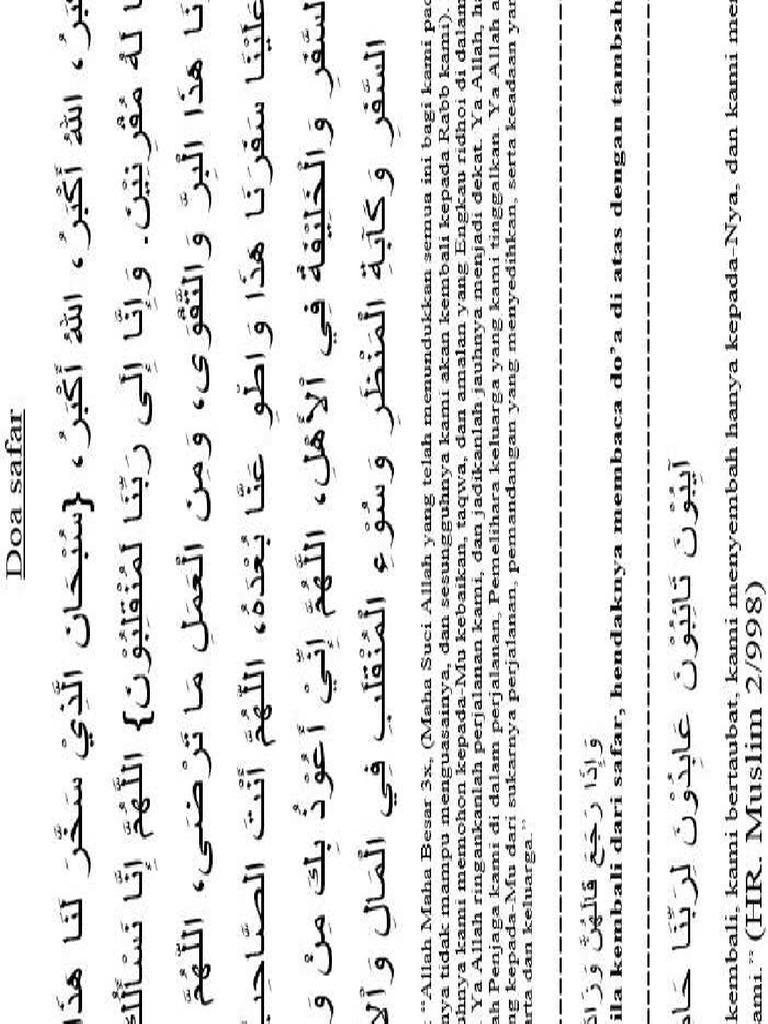 Doa safar
اللهُ أَكْبَرُ، اللهُ أَكْبَرُ، {سُبْحَانَ الَّذِيْ سَخَّرَ لَنَا هَذَا
لَهُ مُقْرِنِيْنَ. وَإِنَّا إِلَى رَبِّنَا لَمُنْقَلِبُوْنَ} اللَّهُمَّ إِنَّا نَسْأَلُكَ
هَذَا الْبِرَّ وَالتَّقْوَى، وَمِنَ الْعَمَلِ مَا تَرْضَى، اللَّهُمَّ
عَلَيْنَا سَفَرَنَا هَذَا وَاطْوِ عَنَّا بُعْدَهُ، اللَّهُمَّ أَنْتَ الصَّاحِبُ
لسَّفَرِ وَالْخَلِيْفَةُ فِي اْلأَهْلِ، اللَّهُمَّ إِنِّيْ أَعُوْذُ بِكَ مِنْ وَ
السَّفَرِ وَكَآبَةِ الْمَنْظَرِ وَسُوْءِ الْمُنْقَلَبِ فِي الْمَالِ وَاْلأ
: "Allah Maha Besar 3x, (Maha Suci Allah yang telah menundukkan semua ini bagi kami pad
nya tidak mampu menguasainya, dan sesungguhnya kami akan kembali kepada Rabb kami).
uhnya kami memohon kepada-Mu kebaikan, taqwa, dan amalan yang Engkau ridhoi di dalam
. Ya Allah ringankanlah perjalanan kami, dan jadikanlah jauhnya menjadi dekat. Ya Allah, ha
ah Penjaga kami di dalam perjalanan, Pemelihara keluarga yang kami tinggalkan. Ya Allah a
ng kepada-Mu dari sukarnya perjalanan, pemandangan yang menyedihkan, serta keadaan yan
arta dan keluarga."
وَإِذَا رَجَعَ قَالَهُنَّ وَزَادَ
ila kembali dari safar, hendaknya membaca do'a di atas dengan tambah
آيِبُوْنَ تَائِبُوْنَ عَابِدُوْنَ لِرَبِّنَا حَا
kembali, kami bertaubat, kami menyembah hanya kepada-Nya, dan kami me
ami." (HR. Muslim 2/998)